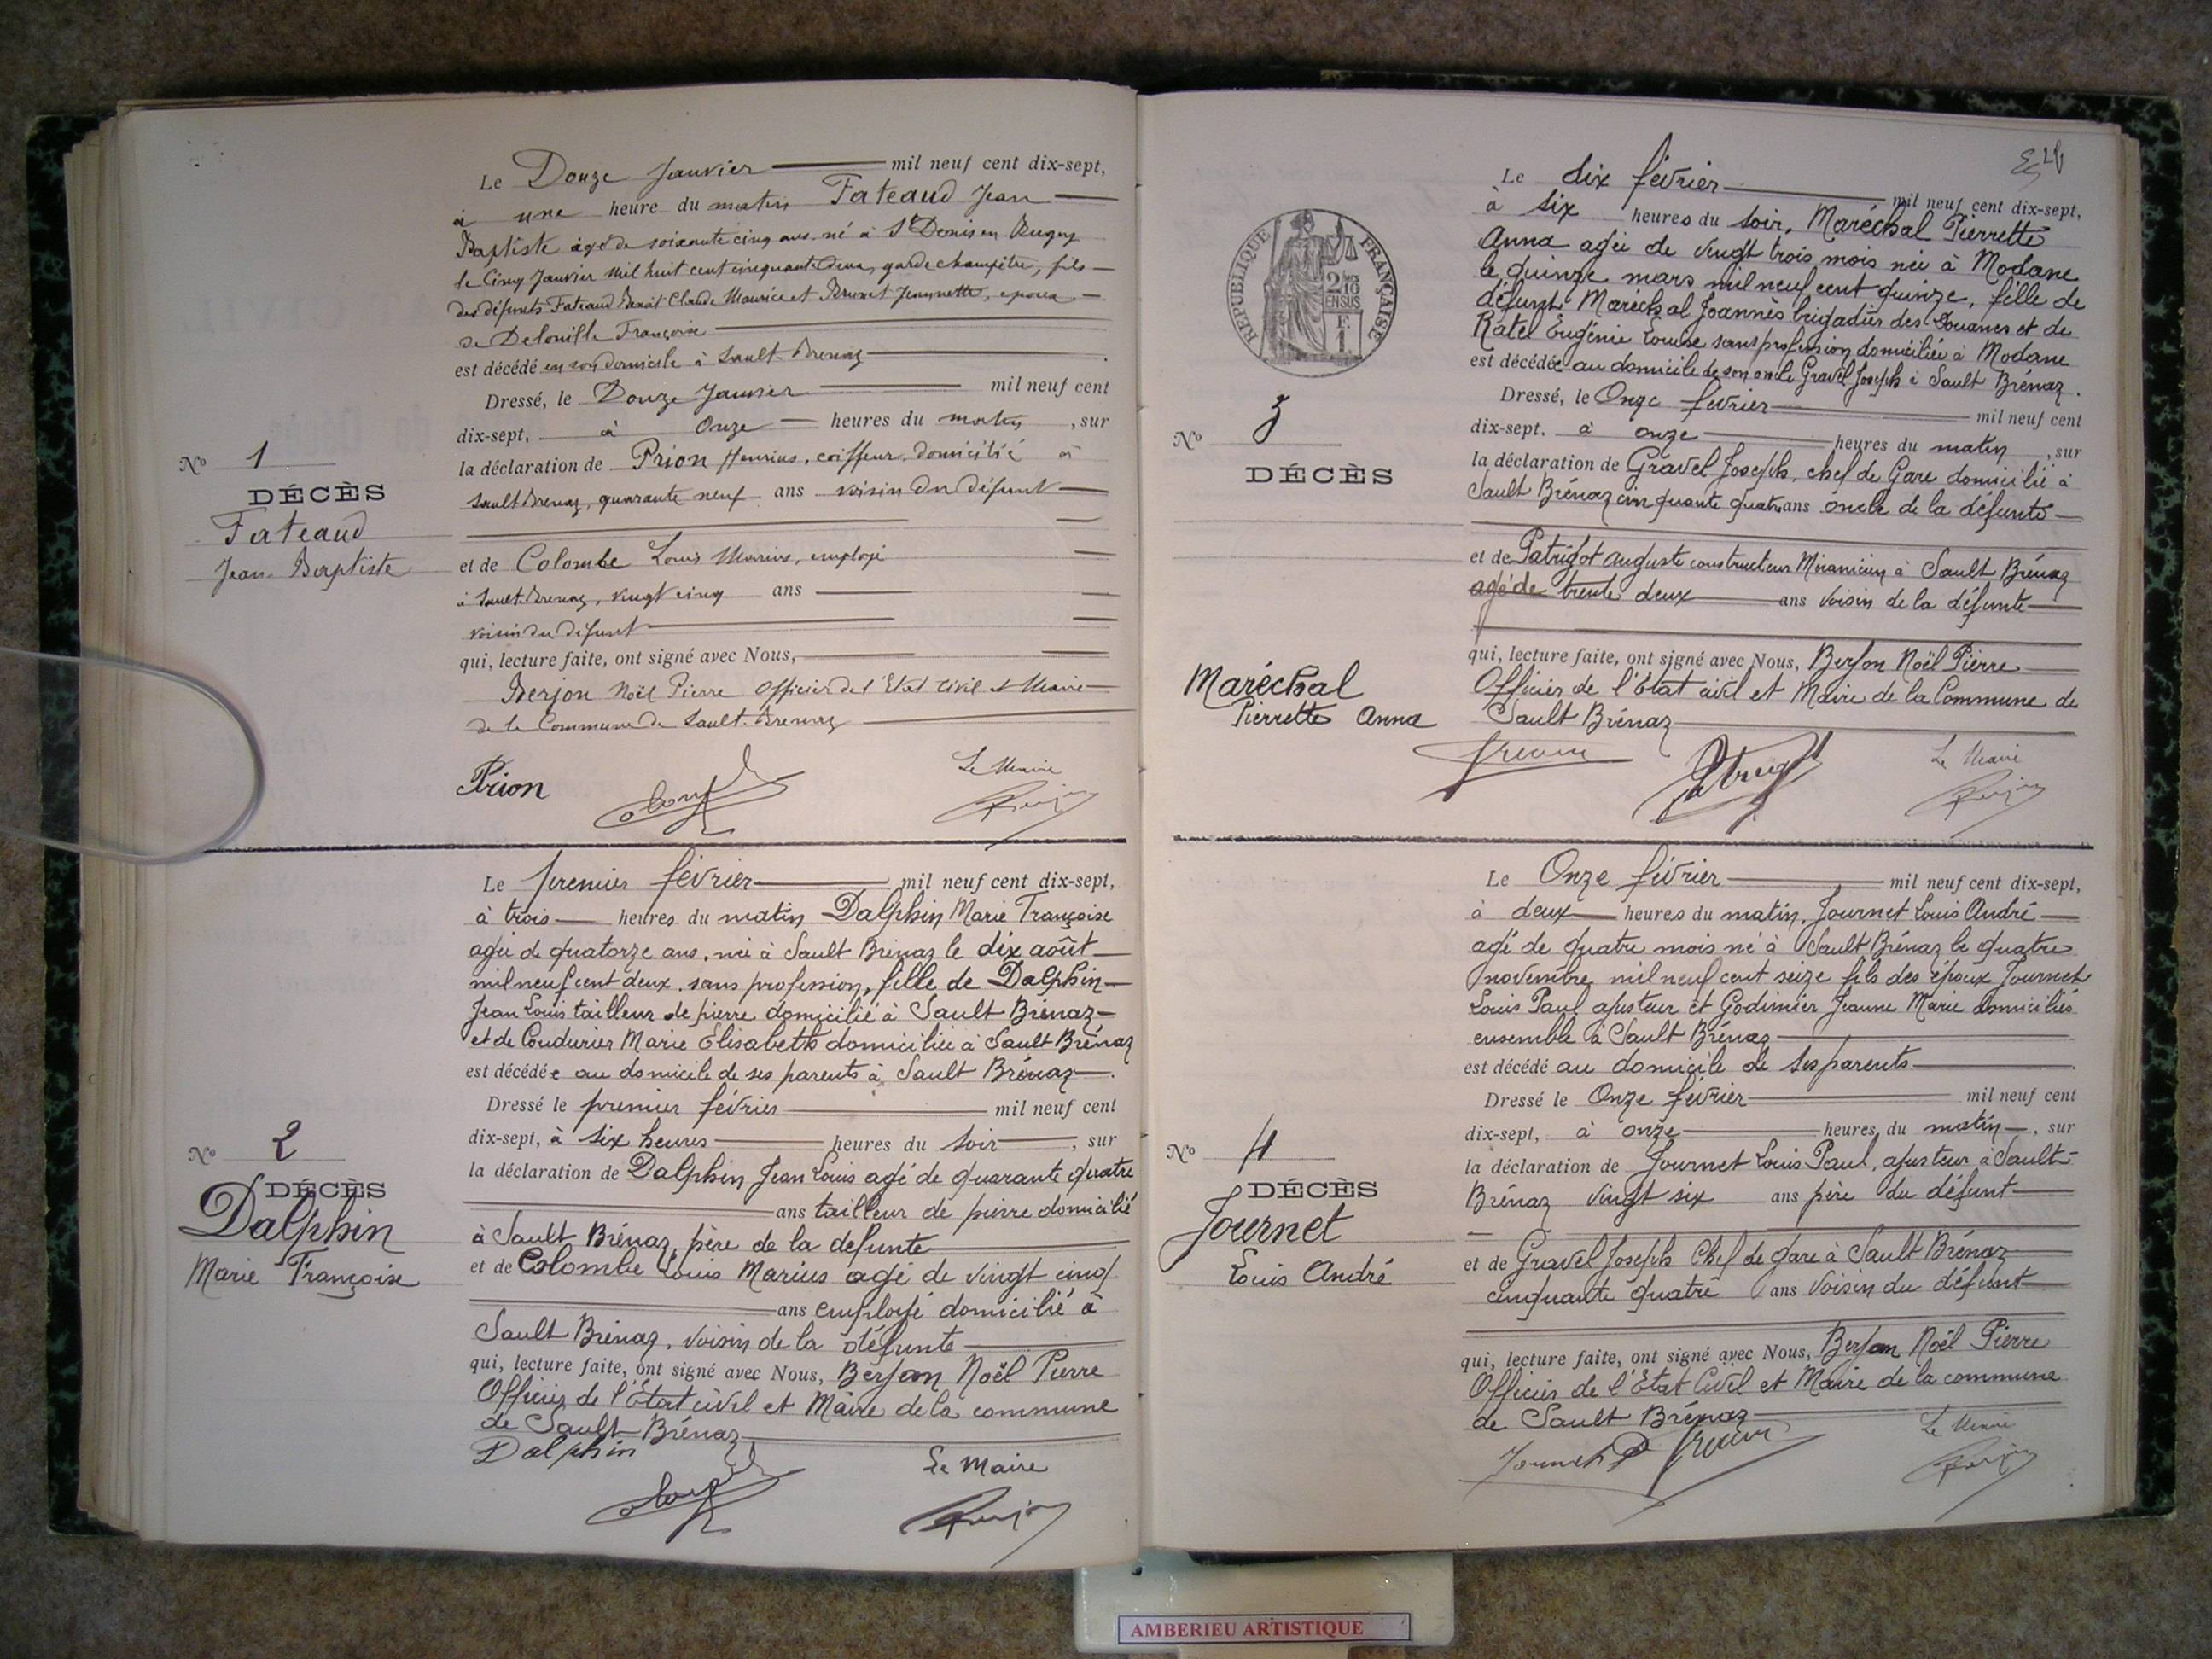 Le Douze Janvier mil neuf cent dix-sept,
à une heure du matin Fateaud Jean
Baptiste agé de soixante cinq ans né à St Denis en Bugey
le Cinq Janvier mil huit cent cinquante deux, garde champêtre, fils
des défunts Fateaud Benoit Claude Maurice et Jeannette, époux
de Françoise
est décédé en son domicile à Sault-Brenaz
Dressé, le Douze Janvier mil neuf cent
dix-sept, à Onze heures du matin, sur
la déclaration de Prion Henrius, coiffeur, domicilié à
Sault Brenaz, quarante neuf ans voisin du défunt
et de Colombe Louis Marius, employé
à Sault-Brenaz, vingt cinq ans
voisin du défunt
qui, lecture faite, ont signé avec Nous,
Berjon Noël Pierre Officier de l'Etat civil et Maire
de la Commune de Sault-Brenaz
No 1
DÉCÈS
Fateaud
Jean-Baptiste
Prion
Le Maire
Le premier février mil neuf cent dix-sept,
à trois heures du matin Dalphin Marie Françoise
agée de quatorze ans, née à Sault Brénaz le dix août
mil neuf cent deux, sans profession, fille de Dalphin
Jean Louis tailleur de pierre domicilié à Sault Brénaz
et de Coudurier Marie Elisabeth domiciliée à Sault Brénaz
est décédée au domicile de ses parents à Sault Brénaz.
Dressé le premier février mil neuf cent
dix-sept, à six heures heures du soir, sur
la déclaration de Dalphin Jean Louis agé de quarante quatre
ans tailleur de pierre domicilié
à Sault Brénaz, père de la défunte
et de Colombe Louis Marius agé de vingt cinq
ans employé domicilié à
Sault Brénaz, voisin de la défunte
qui, lecture faite, ont signé avec Nous, Berjon Noël Pierre
Officier de l'État civil et Maire de la commune
de Sault Brénaz
No 2
DÉCÈS
Dalphin
Marie Françoise
Dalphin
Le Maire
REPUBLIQUE FRANÇAISE
Le dix février mil neuf cent dix-sept,
à six heures du soir, Maréchal Pierrette
Anna agée de vingt trois mois née à Modane
le quinze mars mil neuf cent quinze, fille de
défunt Maréchal Joannès brigadier des Douanes et de
Ratel Eugénie Louise sans profession domiciliée à Modane
est décédée au domicile de son oncle Gravel Joseph à Sault Brénaz.
Dressé, le Onze février mil neuf cent
dix-sept. à onze heures du matin, sur
la déclaration de Gravel Joseph, chef de Gare domicilié à
Sault Brénaz cinquante quatre ans oncle de la défunte
et de Patrigot Auguste constructeur Mécanicien à Sault Brénaz
agé de trente deux ans voisin de la défunte
qui, lecture faite, ont signé avec Nous, Berjon Noël Pierre
Officier de l'État civil et Maire de la Commune de
Sault Brénaz
No 3
DÉCÈS
Maréchal
Pierrette Anna
Le Maire
Le Onze février mil neuf cent dix-sept,
à deux heures du matin, Journet Louis André
agé de quatre mois né à Sault Brénaz le quatre
novembre mil neuf cent seize fils des époux Journet
Louis Paul ajusteur et Godimier Jeanne Marie domiciliés
ensemble à Sault Brénaz
est décédé au domicile de ses parents
Dressé le Onze février mil neuf cent
dix-sept, à onze heures du matin, sur
la déclaration de Journet Louis Paul, ajusteur à Sault
Brénaz vingt six ans père du défunt
et de Gravel Joseph Chef de gare à Sault Brénaz
cinquante quatre ans voisin du défunt
qui, lecture faite, ont signé avec Nous, Berjon Noël Pierre
Officier de l'État Civil et Maire de la commune
de Sault Brénaz
No 4
DÉCÈS
Journet
Louis André
Le Maire
AMBERIEU ARTISTIQUE